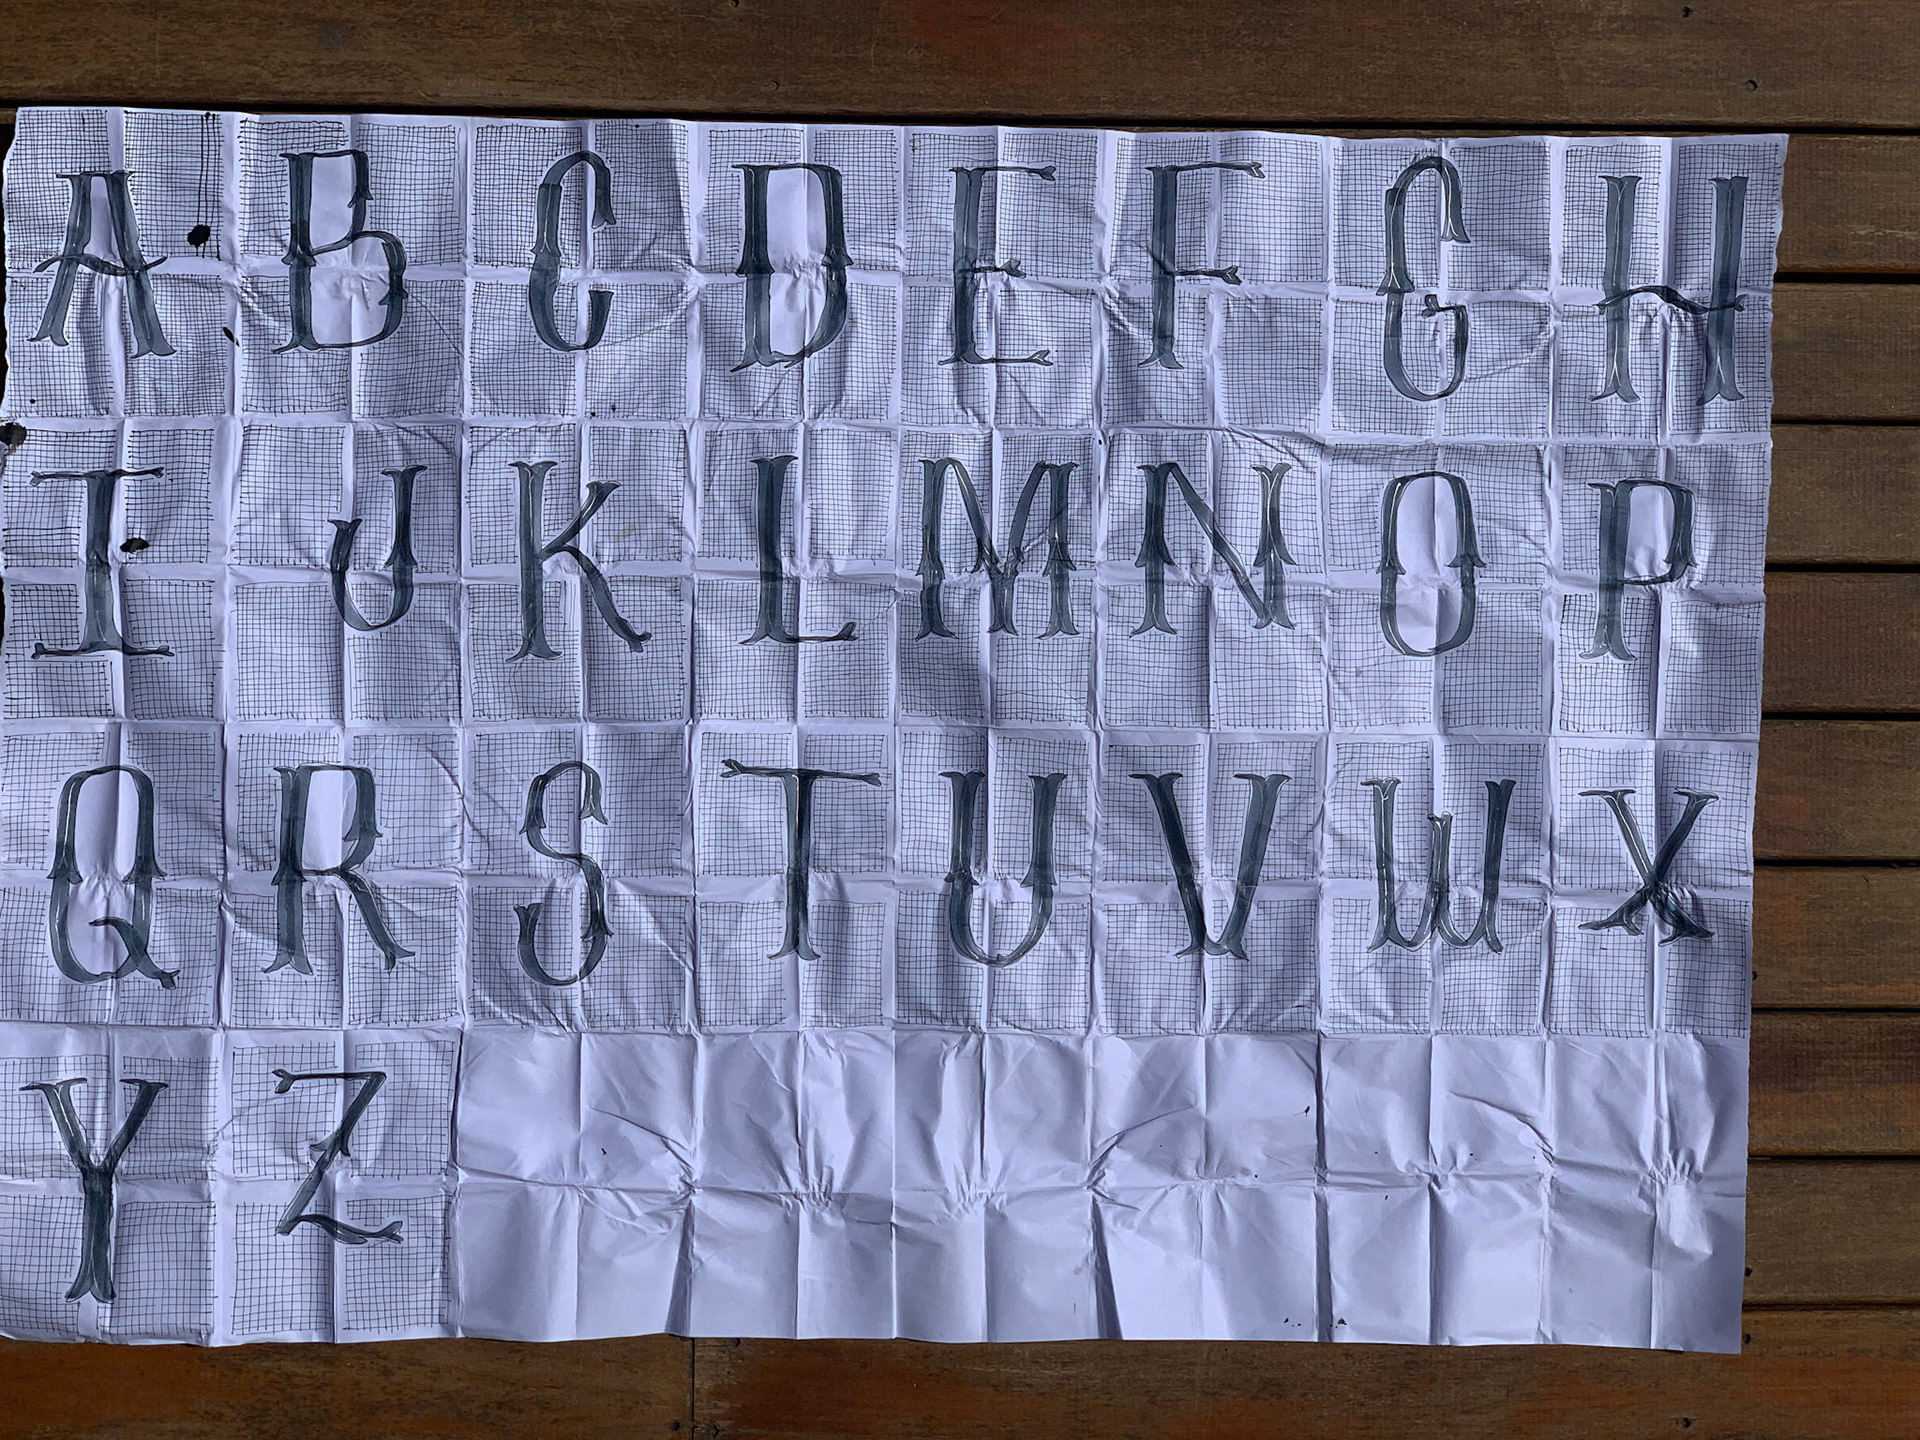 A B C D E F G H
I J K L M N O P
Q R S T U V W X
Y Z